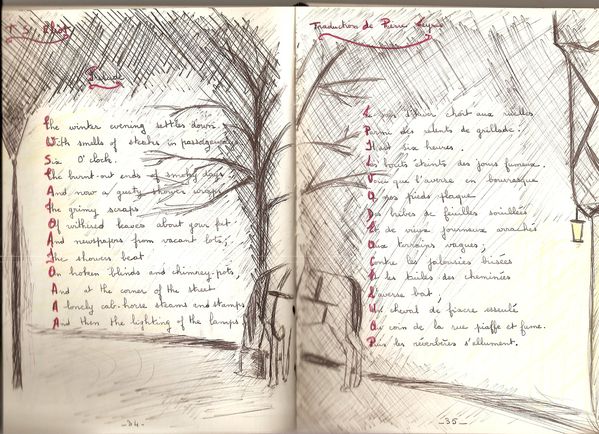 T. S. Eliot
Prélude
The winter evening settles down
With smells of steaks in passageways
Six O'clock.
The burnt-out ends of smoky days
And now a gusty shower wraps
The grimy scraps
Of withered leaves about your feet
And newspapers from vacant lots;
The showers beat
On broken blinds and chimney-pots,
And at the corner of the street
A lonely cab-horse steams and stamps
And then the lighting of the lamps
_34_
Traduction de Pierre Leyris
Le soir d'hiver choit aux ruelles
Parmi des relents de grillade.
Six heures.
Les bouts éteints des jours fumeux.
Voici que l'averse en bourrasque
A nos pieds plaque
Des bribes de feuilles souillées
Et de vieux journaux arrachés
Aux terrains vagues;
Contre les jalousies brisées
Et les tuiles des cheminées
L'averse bat;
Un cheval de fiacre esseulé
Au coin de la rue piaffe et fume.
Puis les réverbères s'allument.
_35_